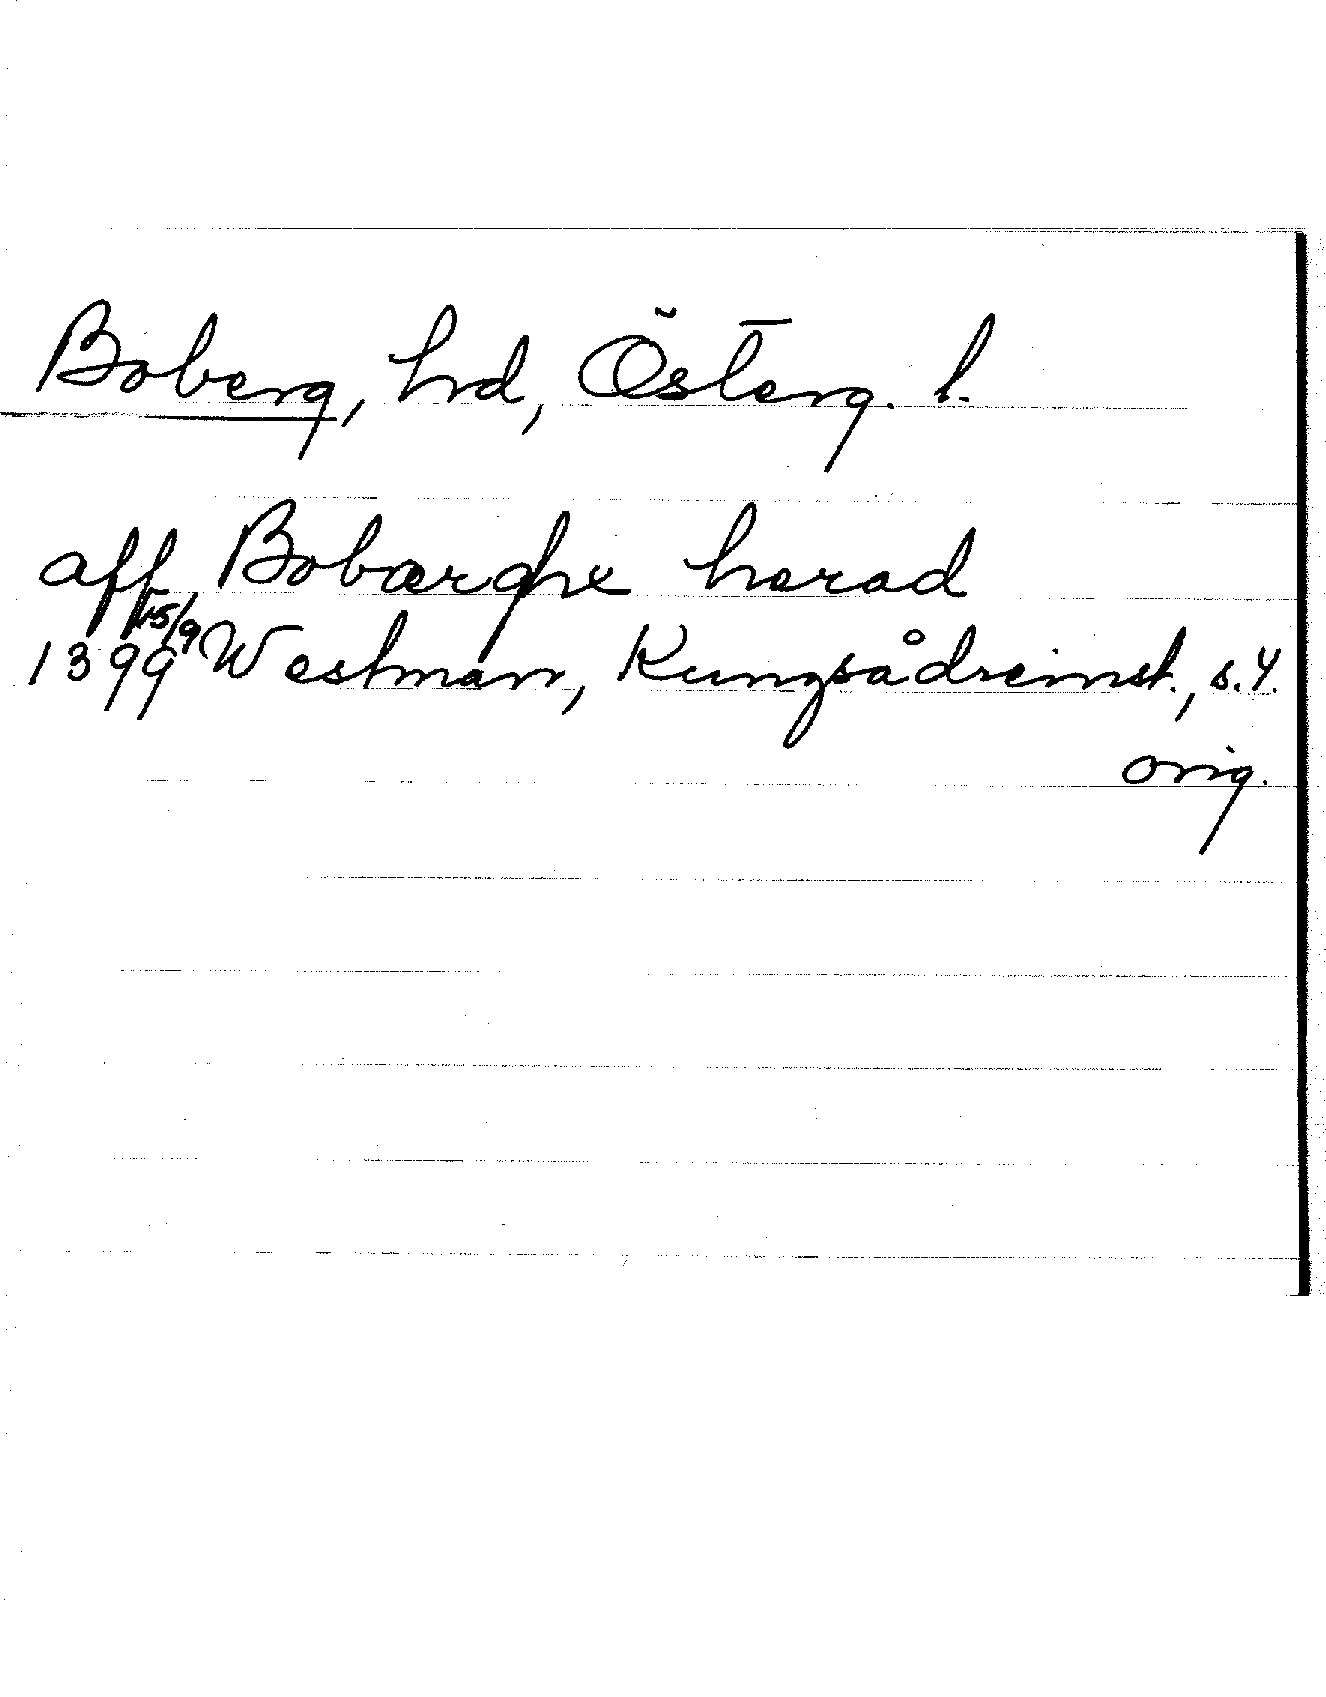 Boberg, hrd, Österg. l.
aff Bobærghx herad
1399 15/9 Westman, Kungsådreinst., s. 4.
orig.